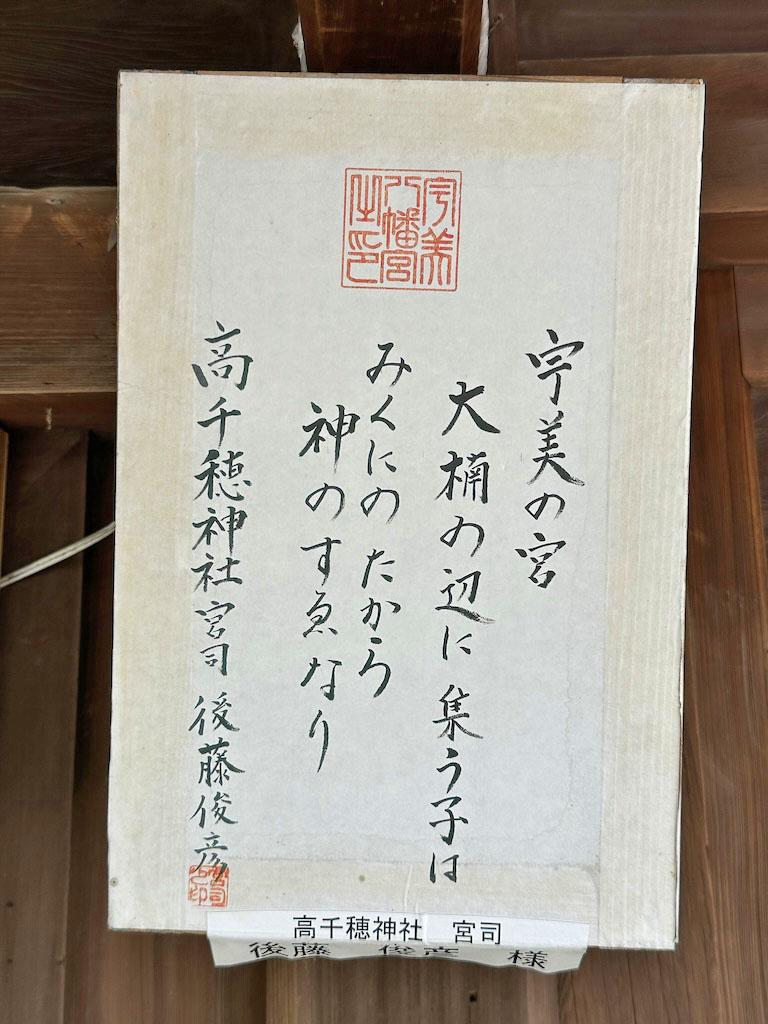 宇美八幡宮之印
宇美の宮
大楠の辺に集う子は
みくにのたから
神のすゑなり
高千穂神社宮司 後藤俊彦
高千穂神社 宮司
後藤 俊彦 様